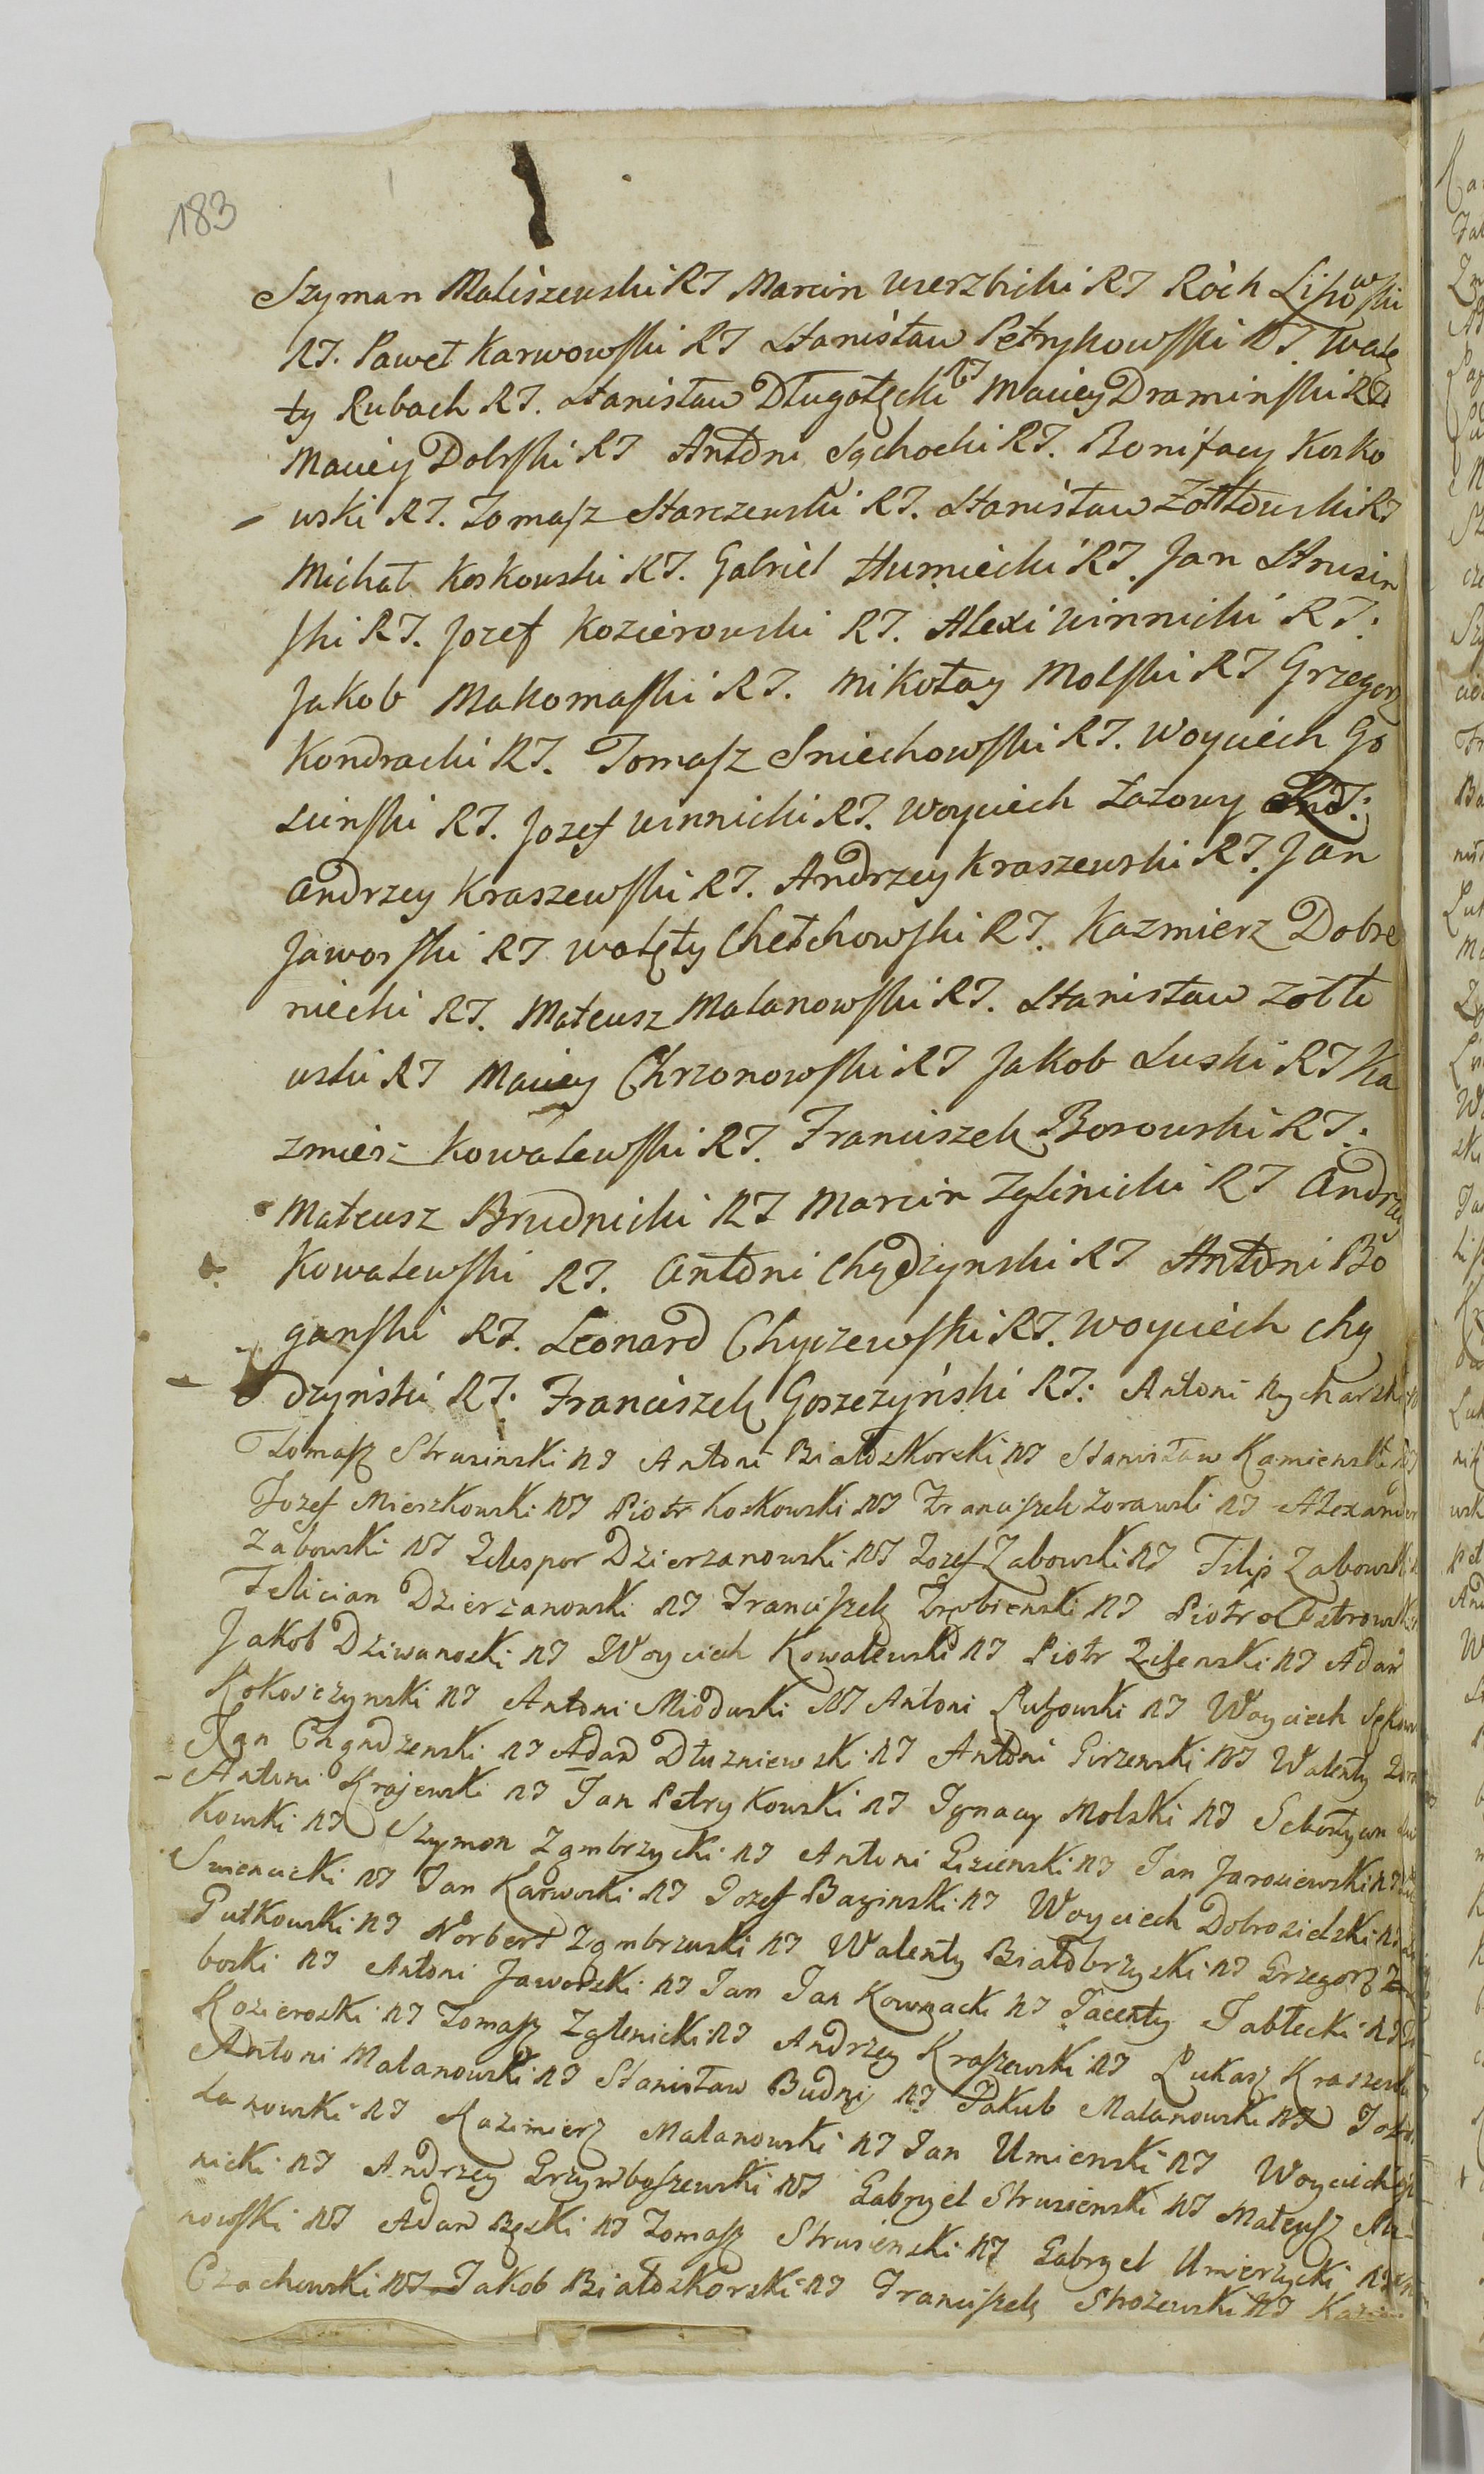 183
Szyman Maliszewski RJ Marcin Wierzbicki RJ Róch Lipowski
RJ. Paweł Karwowski RJ Stanisław Petrykowski RJ. Walę
ty Rubach RJ. Stanisław Długołęcki RJ Maciey Draminski RJ
Maciey Dolski RJ Antoni Sąchocki RJ. Bonifacy Kosko
wski RJ. Tomasz Starczewski RJ. Stanisław Zołtowski RJ
Michał Koskowski RJ. Gabriel Humiecki RJ. Jan Strusin
ski RJ. Jozef Kozierowski RJ. Alexi Winnicki RJ.
Jakob Makomaski RJ. Mikołay Molski RJ Grzegorz
Kondracki RJ. Tomasz Sniechowski RJ. Woyciech Go
sciński RJ. Jozef Winnicki RJ. Woyciech Łazowy RJ.
Andrzey Kraszewski RJ. Andrzey Kraszewski RJ. Jan
Jaworski RJ Walęty Chełchowski RJ. Kazmierz Dobre
niecki RJ. Mateusz Malanowski RJ. Stanisław Zołto
wski RJ Maciey Chrzonowski RJ Jakob Luski RJ Ka
zmierz Kowalewski RJ. Franciszek Borowski RJ.
Mateusz Brudnicki RJ Marcin Zglinicki RJ Andrzey
Kowalewski RJ. Antoni Chądzynski RJ Antoni Bo
ganski RJ. Leonard Chyczewski RJ. Woyciech Chą
dzyński RJ. Franciszek Goszczyński RJ: Antoni Rycharski
Tomasz Strusinski RJ Antoni Białoskorski RJ Stanisław Kamienski RJ
Jozef Mieszkowski RJ Piotr Koskowski RJ Franciszek Zorawski RJ Alexander
Zabowski RJ Telespor Dzierzanowski RJ Jozef Zabowski RJ Filip Zabowski
Felician Dzierzanowski RJ Franciszek Zrębienski RJ Piotr Ostrowski
Jakob Dziwanoski RJ Woyciech Kowalewski RJ Piotr Zilenski RJ Adam
Kokosczynski RJ Antoni Mioduski RJ Antoni Lutzowski RJ Woyciech
Jan Chądzenski RJ Adam Dłuzniewski RJ Antoni Girzewski RJ Walenty
Antoni Krajewski RJ Jan Petrykowski RJ Jgnacy Molski RJ Sebestyan
kowski RJ Szymon Zgmbrzycki RJ Antoni Gizienski RJ Jan Jaroziewski RJ
Swienicki RJ Jan Karwoski RJ Jozef Baginski RJ Woyciech Dobrosielski RJ
Gutkowski RJ Norbert Zgmbrzuski RJ Walenty Białobrzyski RJ Grzegorz
boski RJ Antoni Jaworski RJ Jan Jan Kownacki RJ Jacenty Jabłecki RJ
Kozieroski RJ Tomasz Zglenicki RJ Andrzey Kraszewski RJ Łukasz Kraszewski
Antoni Malanowski RJ Stanisław Budny RJ Jakub Malanowski RJ
lanowski RJ Kazimierz Malanowski RJ Jan Umienski RJ Woyciech
nicki RJ Andrzey Grzymboszewski RJ Gabryel Strusienski RJ Mateusz
nowski RJ Adam Bęski RJ Tomasz Strusienski RJ Gabryel Umierzycki RJ
Czachowski RJ Jakob Białoskorski RJ Franciszek Strozewski RJ